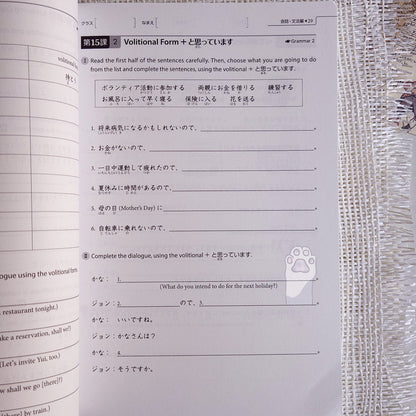 クラス なまえ 会話・文法編◀29
第15課 2 Volitional Form + と思っています ☞Grammar 2
Ⅰ Read the first half of the sentences carefully. Then, choose what you are going to do
from the list and complete the sentences, using the volitional + と思っています.
ボランティア活動に参加する 両親にお金を借りる 練習する
お風呂に入って早く寝る 保険に入る 花を送る
1. 将来病気になるかもしれないので、 。
2. お金がないので、 。
3. 一日中運動して疲れたので、 。
4. 夏休みに時間があるので、 。
5. 母の日 (Mother's Day) に 。
6. 自転車に乗れないので、 。
Ⅱ Complete the dialogue, using the volitional + と思っています.
かな： 1. 。
(What do you intend to do for the next holiday?)
ジョン： 2. ので、 3. 。
かな： いいですね。
ジョン： かなさんは？
かな： 4. 。
ジョン： そうですか。
volitional
ogue using the volitional form.
restaurant tonight.)
ake a reservation, shall we?)
(Let's invite Yui, too.)
ow shall we go [there]?)
[there] by train.)